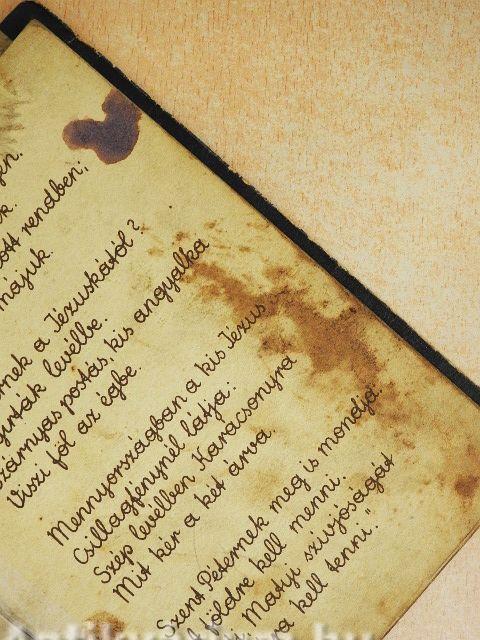 rendben;
májuk.
a Jézuskától?
levélbe.
postás, kis angyalka
Viszi föl az égbe.
Mennyországban a kis Jézus
Csillagfénynél látja:
Szép levélben Karácsonyra
Mit kér a két árva.
Szent Péternek meg is mondja:
földre kell menni.
Mátyi szívjóságát
kell tenni."